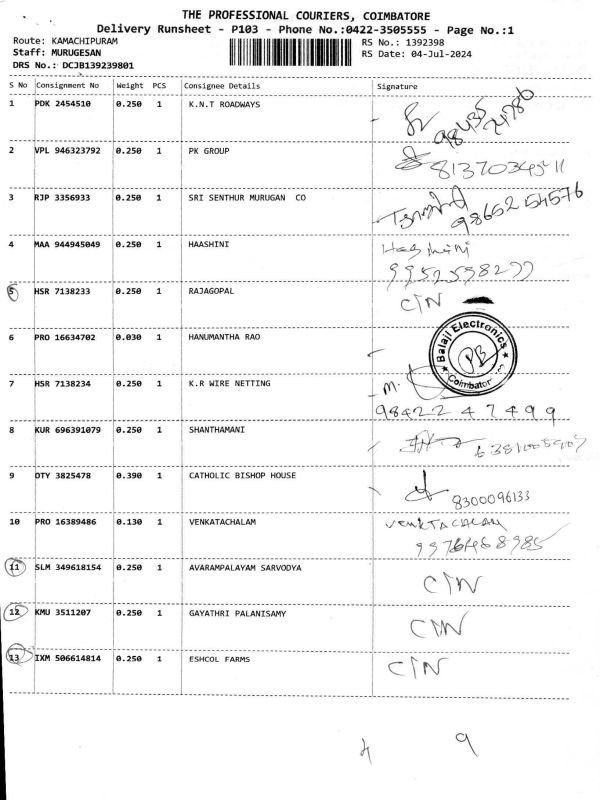 THE PROFESSIONAL COURIERS, COIMBATORE
Delivery Runsheet - P103 - Phone No.:0422-3505555 - Page No.:1
Route: KAMACHIPURAM RS No.: 1392398
Staff: MURUGESAN RS Date: 04-Jul-2024
DRS No.: DCJB139239801
S No Consignment No Weight PCS Consignee Details Signature
1 PDK 2454510 0.250 1 K.N.T ROADWAYS
2 VPL 946323792 0.250 1 PK GROUP
8137034511
3 RJP 3356933 0.250 1 SRI SENTHUR MURUGAN CO
98652 54576
4 MAA 944945049 0.250 1 HAASHINI Hashini
9952598277
5 HSR 7138233 0.250 1 RAJAGOPAL CIN
6 PRO 16634702 0.030 1 HANUMANTHA RAO
Balaji Electronics
Coimbatore
7 HSR 7138234 0.250 1 K.R WIRE NETTING M.
98422 47499
8 KUR 696391079 0.250 1 SHANTHAMANI
9 OTY 3825478 0.390 1 CATHOLIC BISHOP HOUSE
8300096133
10 PRO 16389486 0.130 1 VENKATACHALAM VENKTACHALAM
9976468985
11 SLM 349618154 0.250 1 AVARAMPALAYAM SARVODYA CIN
12 KMU 3511207 0.250 1 GAYATHRI PALANISAMY CIN
13 IXM 506614814 0.250 1 ESHCOL FARMS CIN
4 9